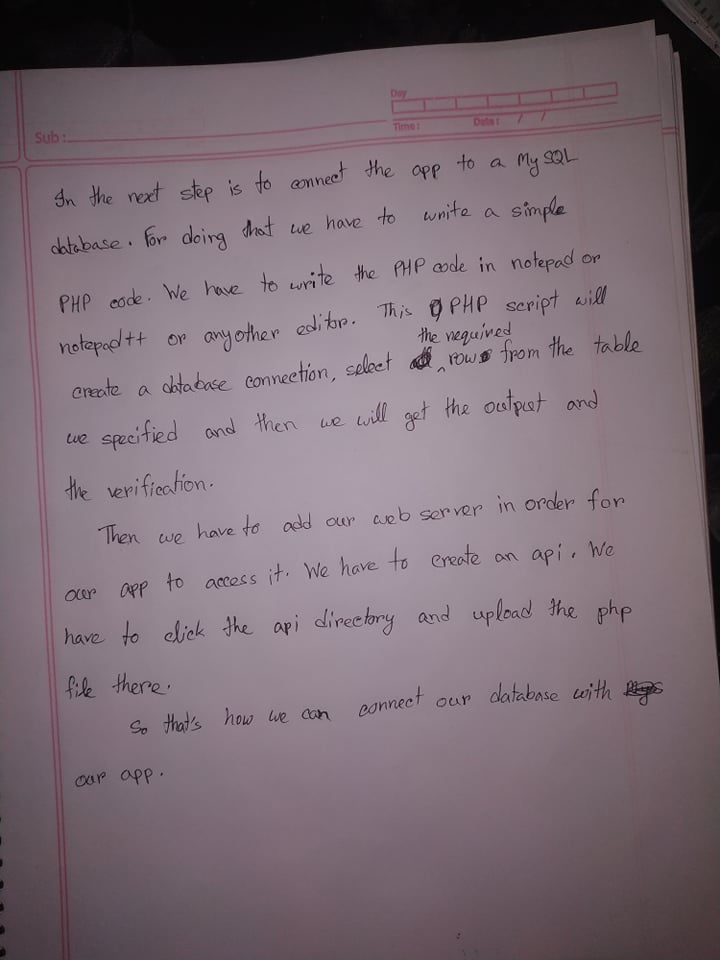 Day
Sub :
Time :
Date : / /
In the next step is to connect the app to a My SQL
database. For doing that we have to write a simple
PHP code. We have to write the PHP code in notepad or
notepad++ or any other editor. This PHP script will
the required
create a database connection, select ^ rows from the table
we specified and then we will get the output and
the verification.
Then we have to add our web server in order for
our app to access it. We have to create an api. We
have to click the api directory and upload the php
file there.
So that's how we can connect our database with
our app.